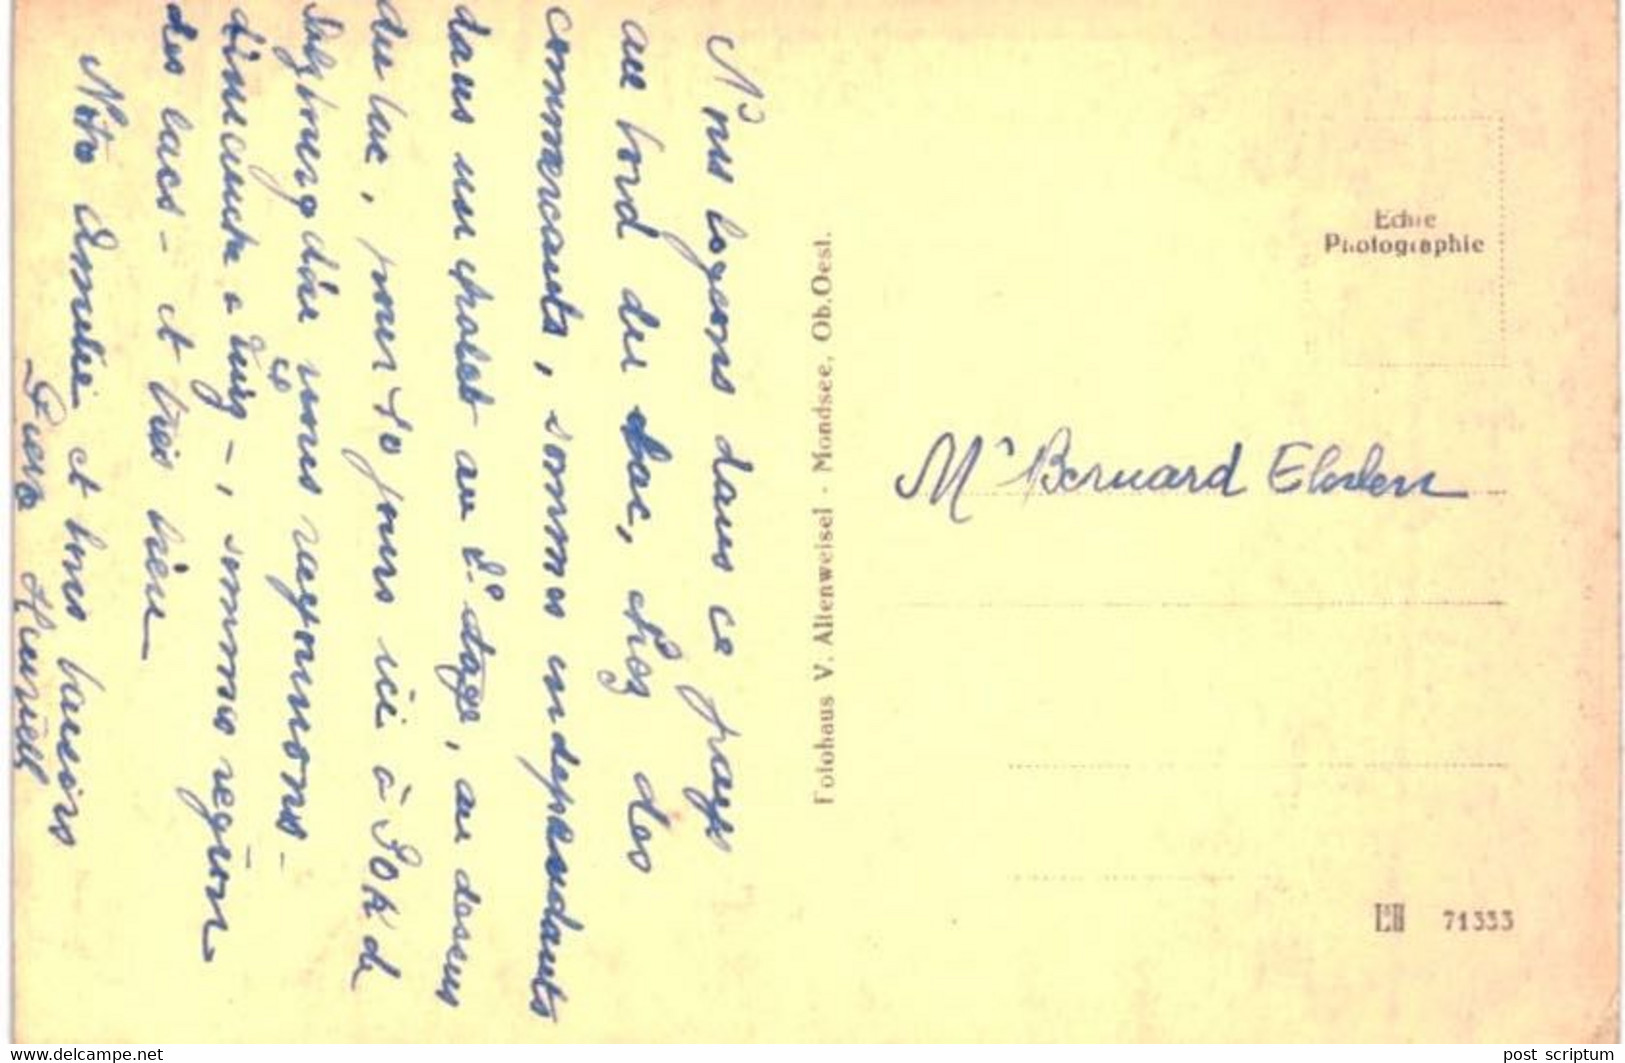 Nous logeons dans ce pays
au bord du lac, chez des
commercants, sommes independants
dans un chalet au 2e étage, au dessus
du lac, pour 10 jours ici à 30 K de
Salzbourg d'où nous rayonnons -
dimanche à -, sommes region
des lacs - et très bien
Notre Amitié et bons baisers
Pierre
Fotohaus V. Altenweisel - Mondsee, Ob.Oest.
Echte
Photographie
Mr Bernard
71333
www.delcampe.net
post_scriptum